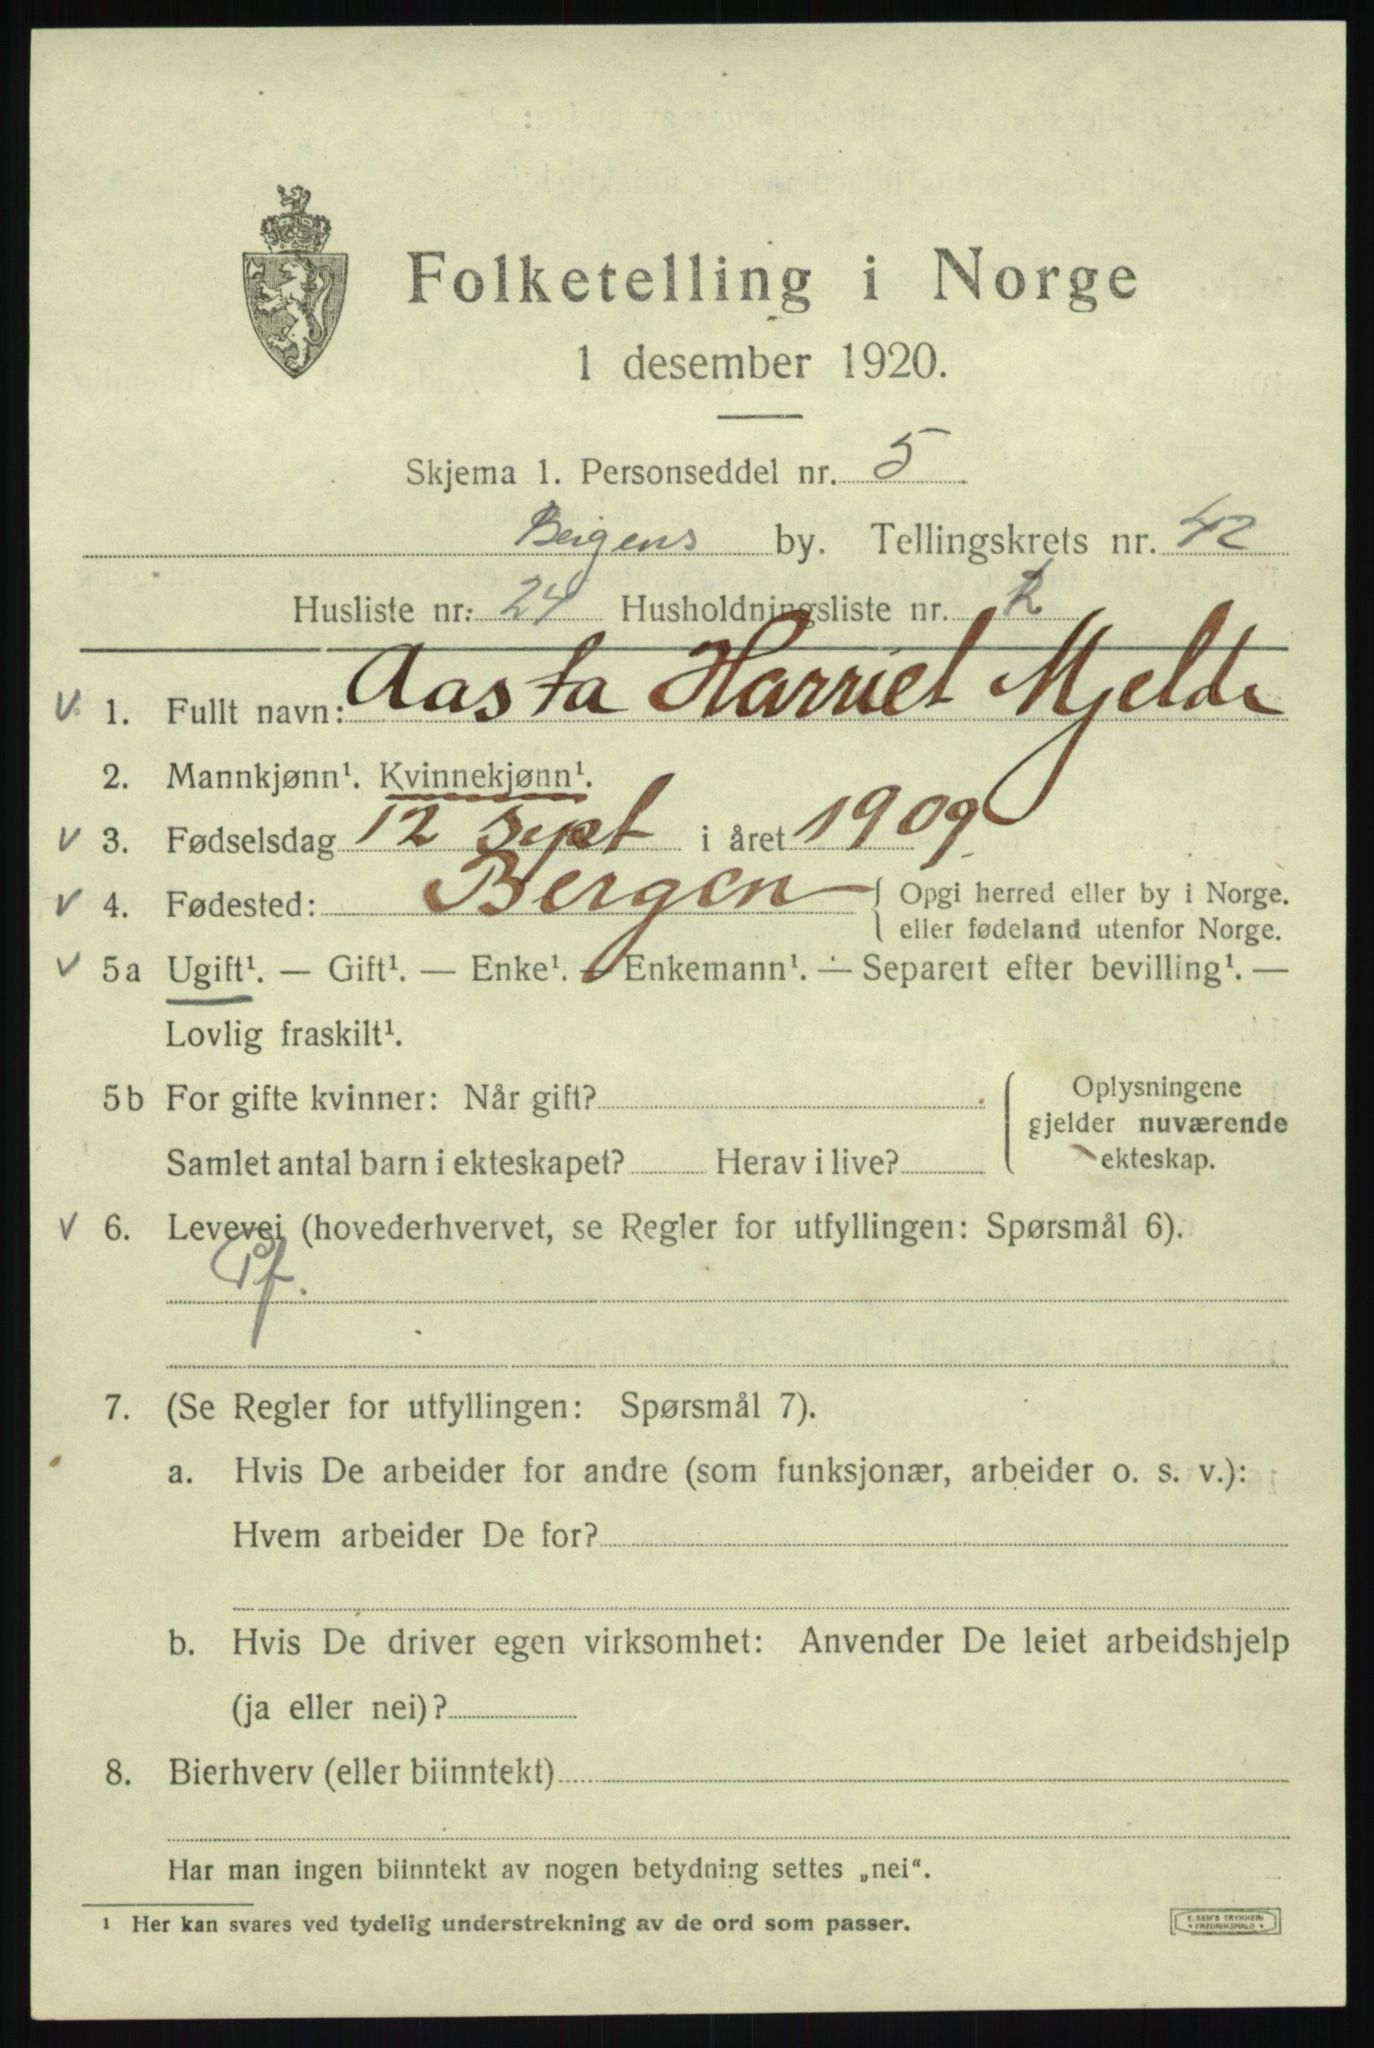 Folketelling i Norge
1 desember 1920.
Skjema 1. Personseddel nr. 5
Bergens by. Tellingskrets nr. 42
Husliste nr. 24 Husholdningsliste nr. 2
V. 1. Fullt navn: Aasta Harriet Mjelde
2. Mannkjønn¹. Kvinnekjønn¹.
V 3. Fødselsdag 12 Sept i året 1909.
V 4. Fødested: Bergen { Opgi herred eller by i Norge.
eller fødeland utenfor Norge.
V 5a Ugift¹. — Gift¹. — Enke¹. — Enkemann¹. — Separert efter bevilling¹. —
Lovlig fraskilt¹.
5b For gifte kvinner: Når gift?
Samlet antal barn i ekteskapet? Herav i live?
Oplysningene
gjelder nuværende
ekteskap.
V 6. Levevei (hovederhvervet, se Regler for utfyllingen: Spørsmål 6).
Pf.
7. (Se Regler for utfyllingen: Spørsmål 7).
a. Hvis De arbeider for andre (som funksjonær, arbeider o. s. v.):
Hvem arbeider De for?
b. Hvis De driver egen virksomhet: Anvender De leiet arbeidshjelp
(ja eller nei)?
8. Bierhverv (eller biinntekt)
Har man ingen biinntekt av nogen betydning settes „nei“.
¹ Her kan svares ved tydelig understrekning av de ord som passer.
E. SEM'S TRYKKERI
• FREDRIKSHALD •